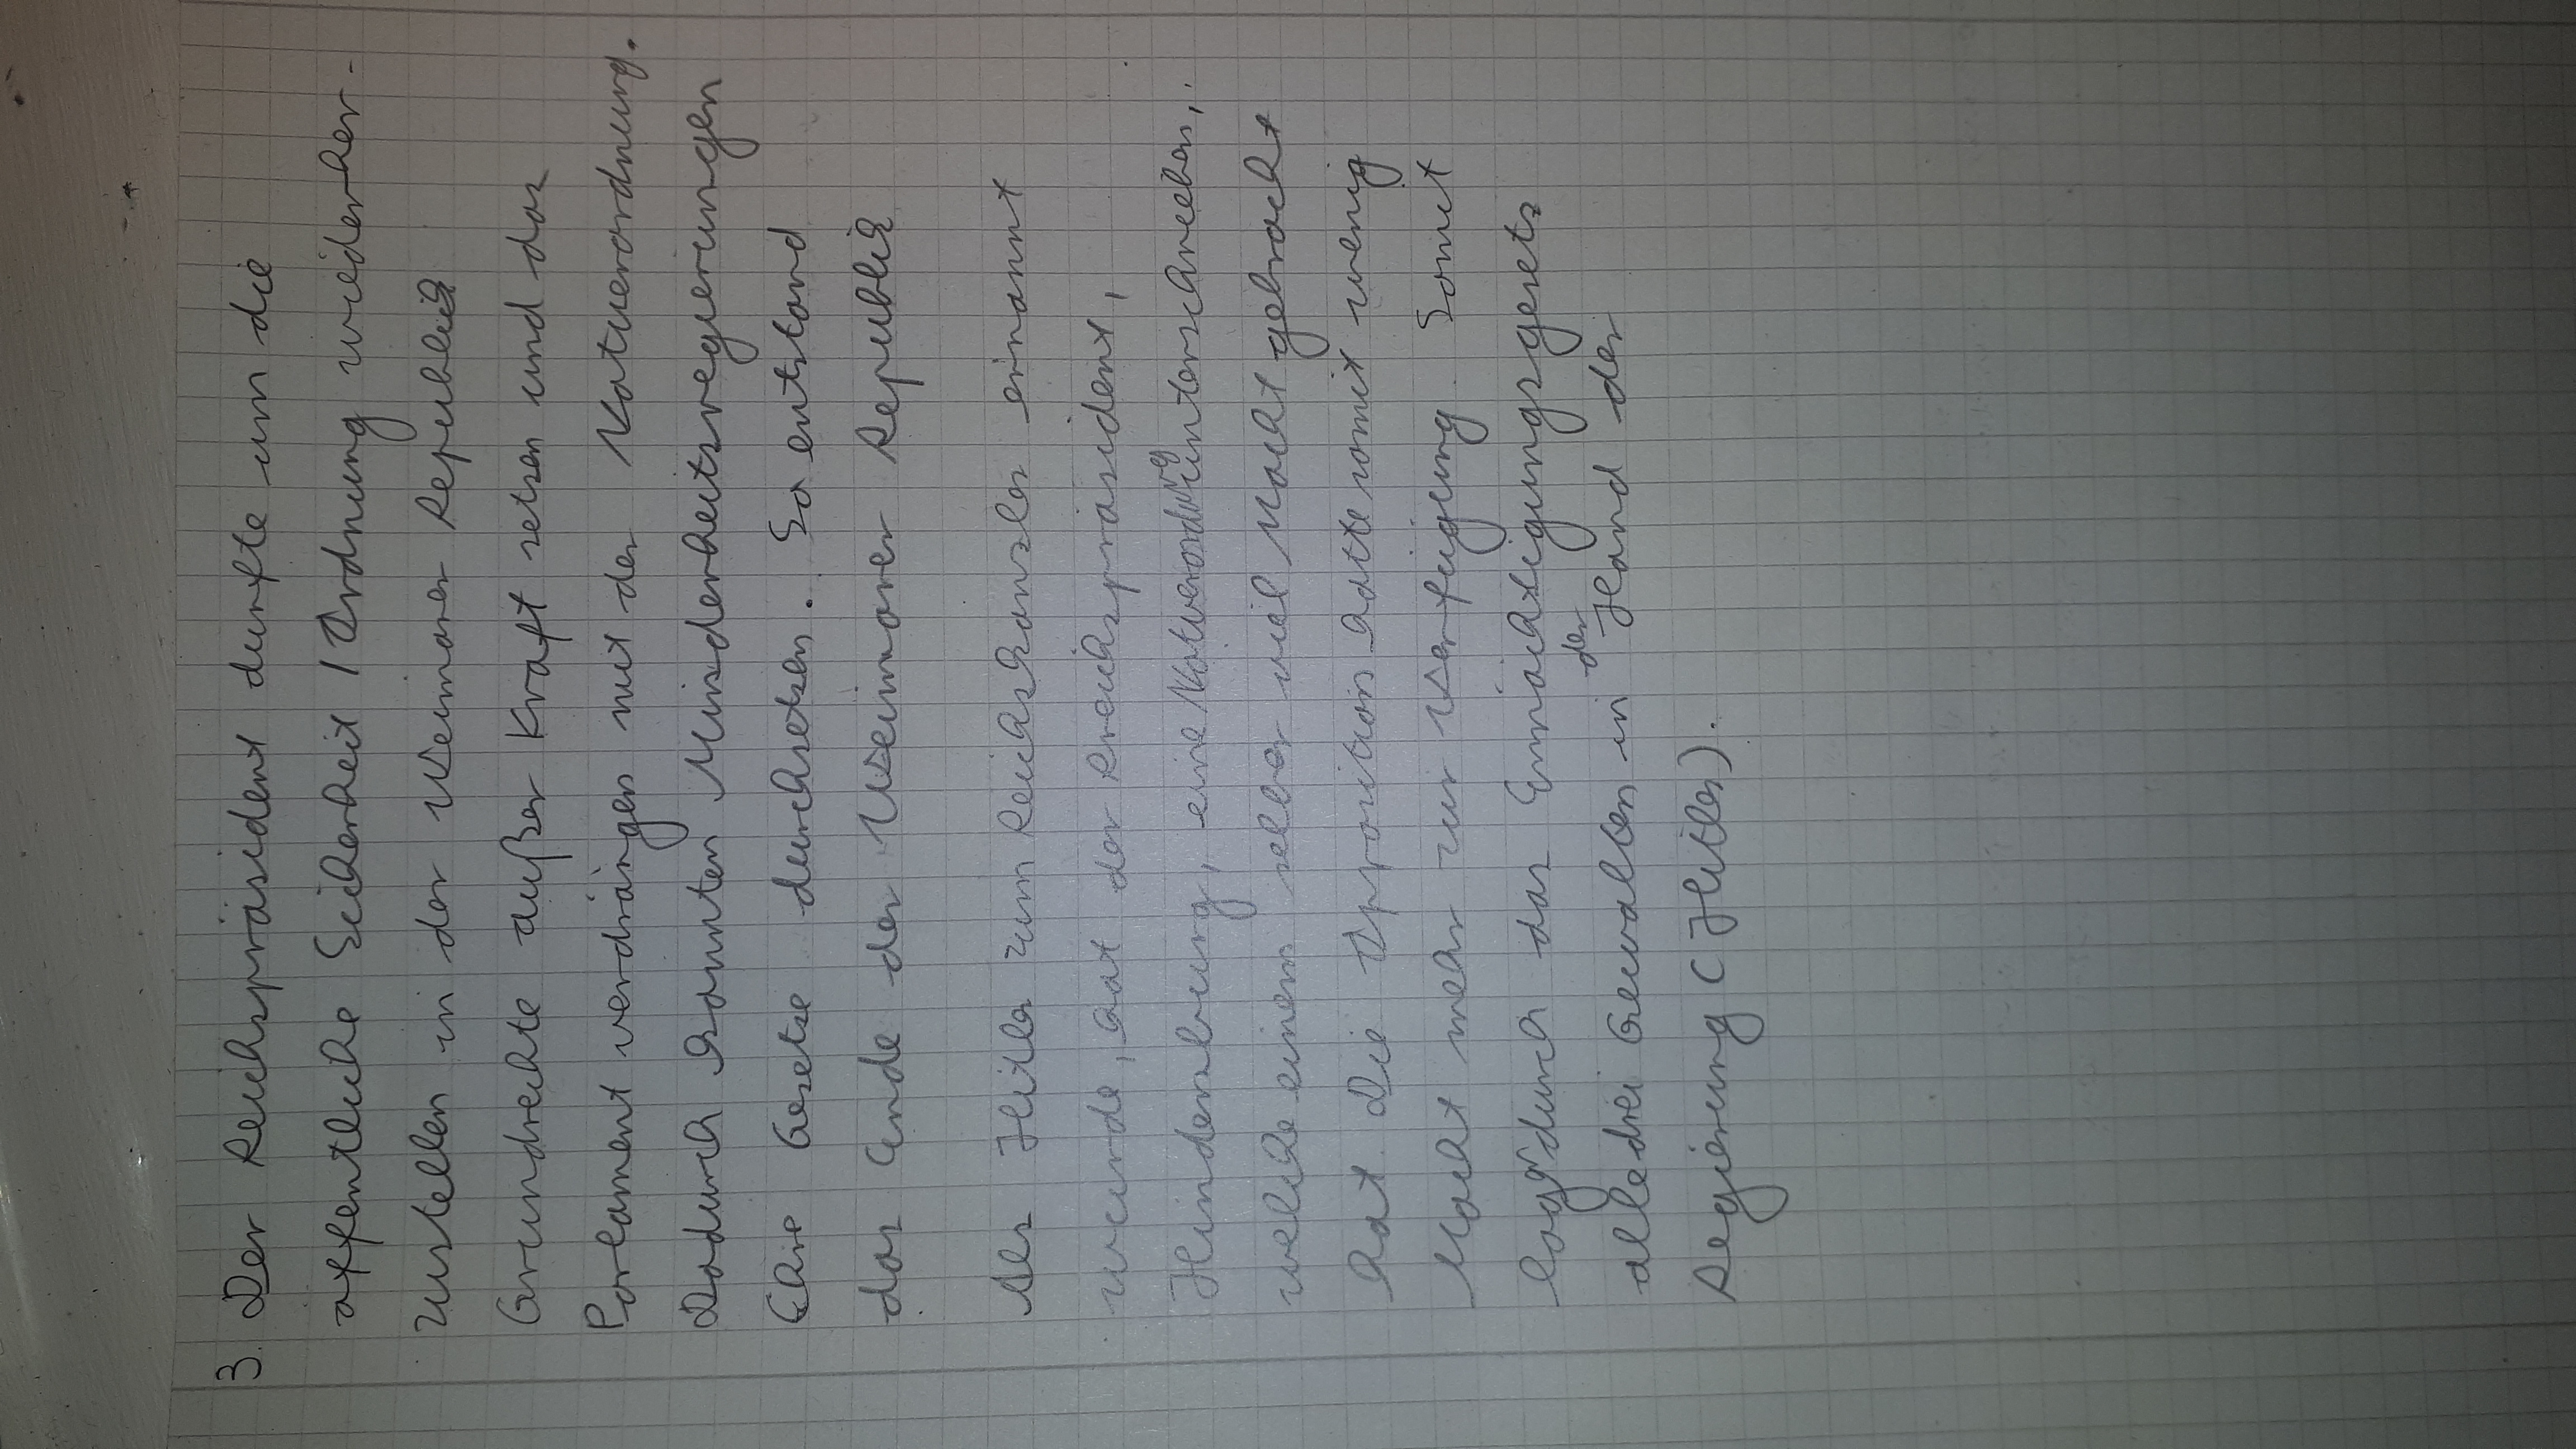 3. Der Reichspräsident durfte um die
öffentliche Sicherheit / Ordnung wiederher-
zustellen in der Weimarer Republik
Grundrechte außer Kraft setzen und das
Parlament verdrängen mit der Notverordnung.
Dadurch konnten Minderheitsregierungen
Ihre Gesetze durchsetzen. So entstand
das Ende der Weimarer Republik
Als Hitler zum Reichskanzler ernannt
wurde, hat der Reichspräsident,
Hindenburg, eine Notverordnung unterschrieben,
welche einem selber viel Macht gebracht
hat. Die Opposition hatte somit wenig
Macht mehr zur Verfügung. Somit
lagen durch das Ermächtigungsgesetz
alle drei Gewalten in der Hand der
Regierung (Hitler).